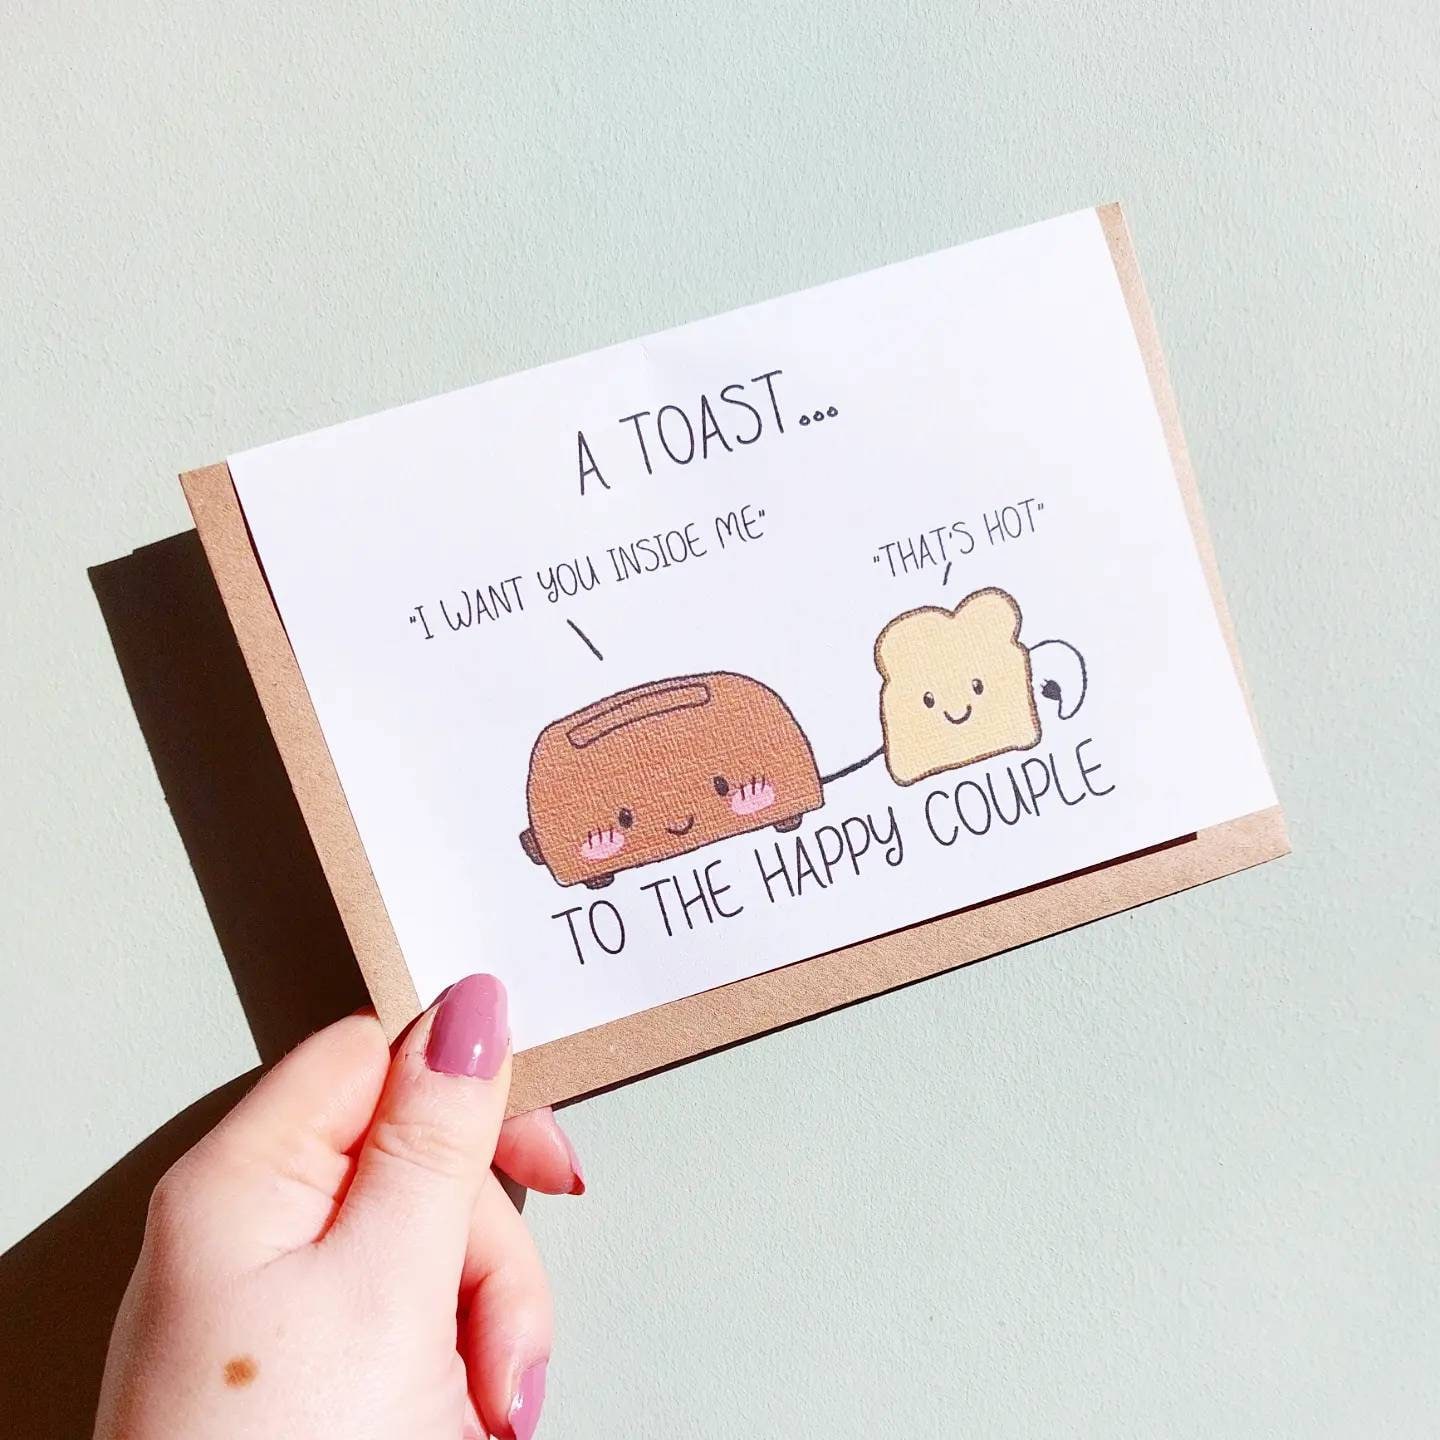 A TOAST...
"I WANT YOU INSIDE ME"
"THAT'S HOT"
TO THE HAPPY COUPLE